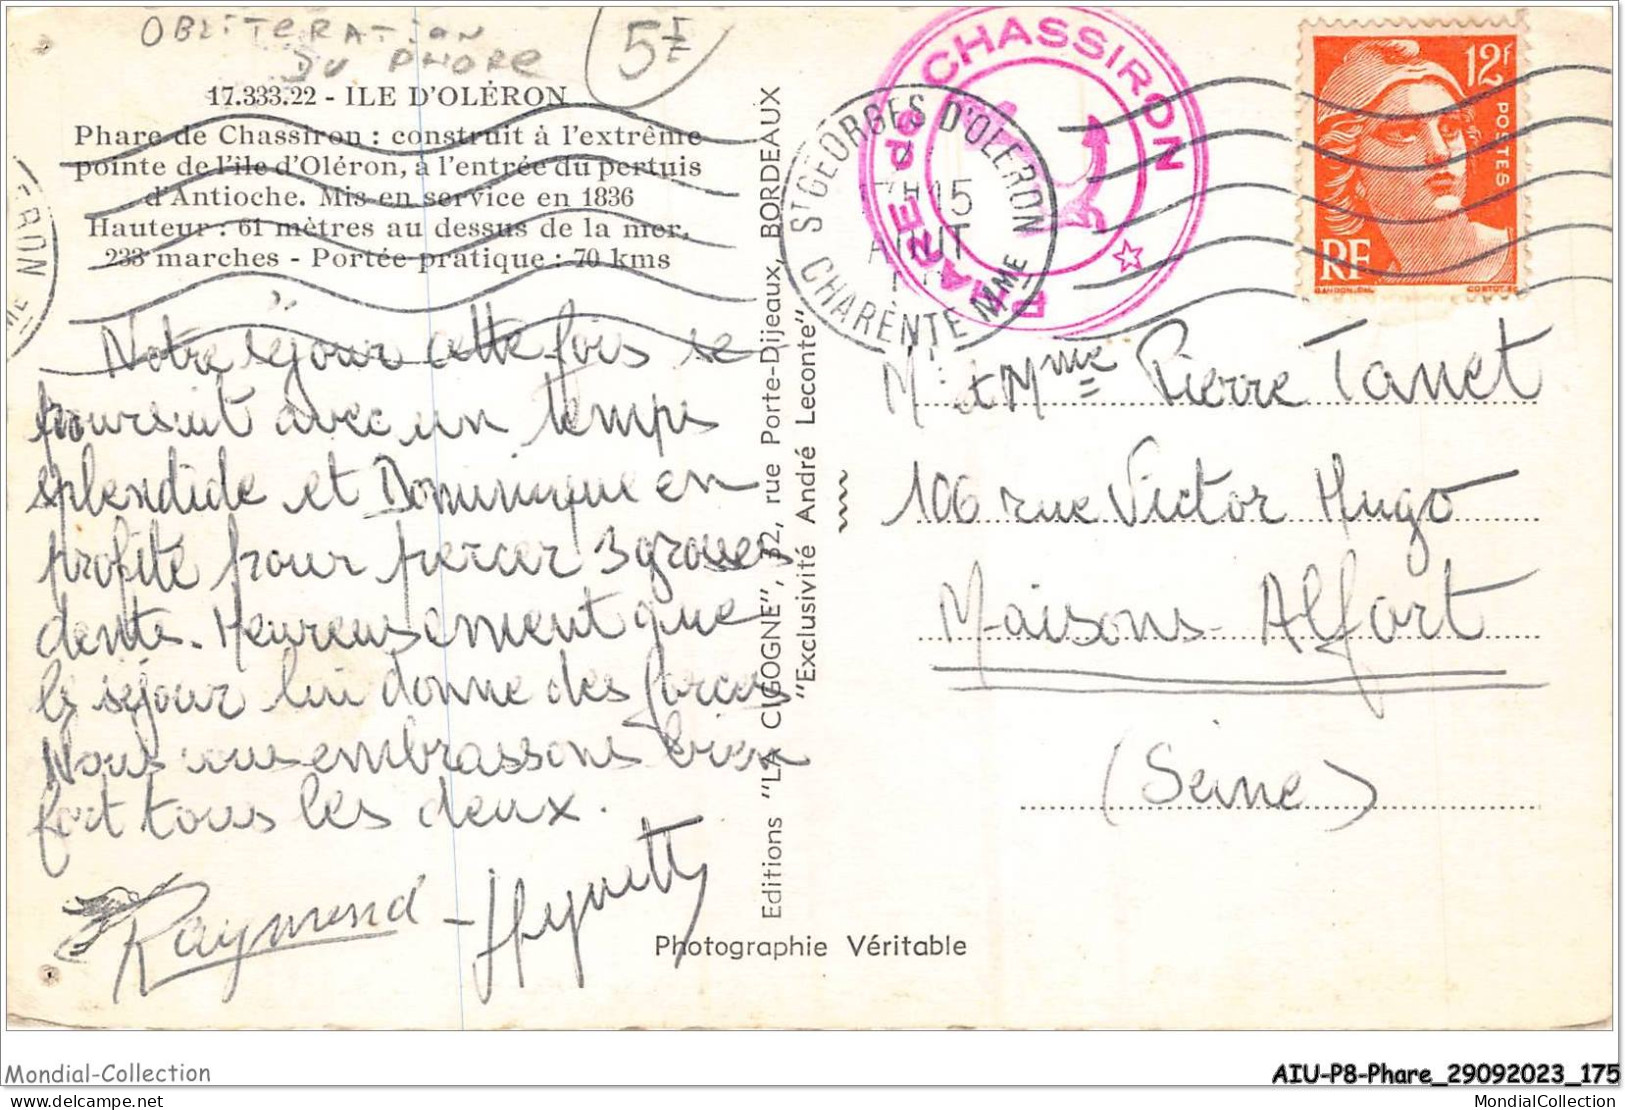 OBLITERATION
DU PHARE
5F
17.333.22 - ILE D'OLÉRON
Phare de Chassiron : construit à l'extrême
pointe de l'île d'Oléron, à l'entrée du pertuis
d'Antioche. Mis en service en 1836
Hauteur : 61 mètres au dessus de la mer.
233 marches - Portée pratique : 70 kms
Notre séjour cette fois se
poursuit avec un temps
splendide et Dominique en
profite pour percer 3 grosses
dents. Heureusement que
le séjour lui donne des forces
Nous vous embrassons bien
fort tous les deux.
Raymond - Huguette
Editions "LA CIGOGNE", 32, rue Porte-Dijeaux, BORDEAUX
"Exclusivité André Leconte"
Photographie Véritable
PHARE de CHASSIRON
ST GEORGES D'OLERON
17H15
AOUT
CHARENTE MME
12F
POSTES
RF
GANDON.DEL
M. et Mme Pierre Tanet
106 rue Victor Hugo
Maisons-Alfort
(Seine)
Mondial-Collection
AIU-P8-Phare_29092023_175
delcampe.net
MondialCollection